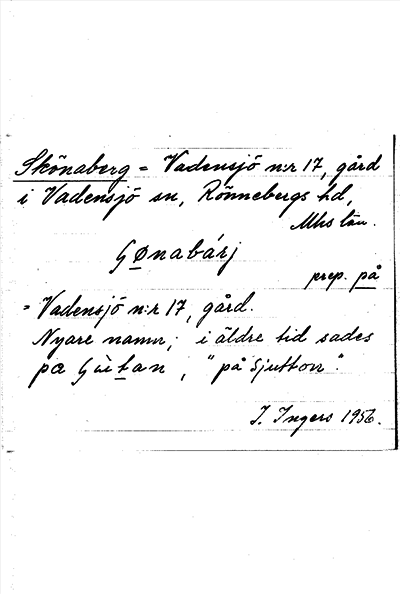 Skönaberg = Vadensjö n:r 17, gård
i Vadensjö sn, Rönnebergs hd,
Mhs län.
Gønabárj
prep. på
= Vadensjö n:r 17, gård.
Nyare namn; i äldre tid sades
pæ Gùtan, "på Sjutton".
I. Ingers 1956.